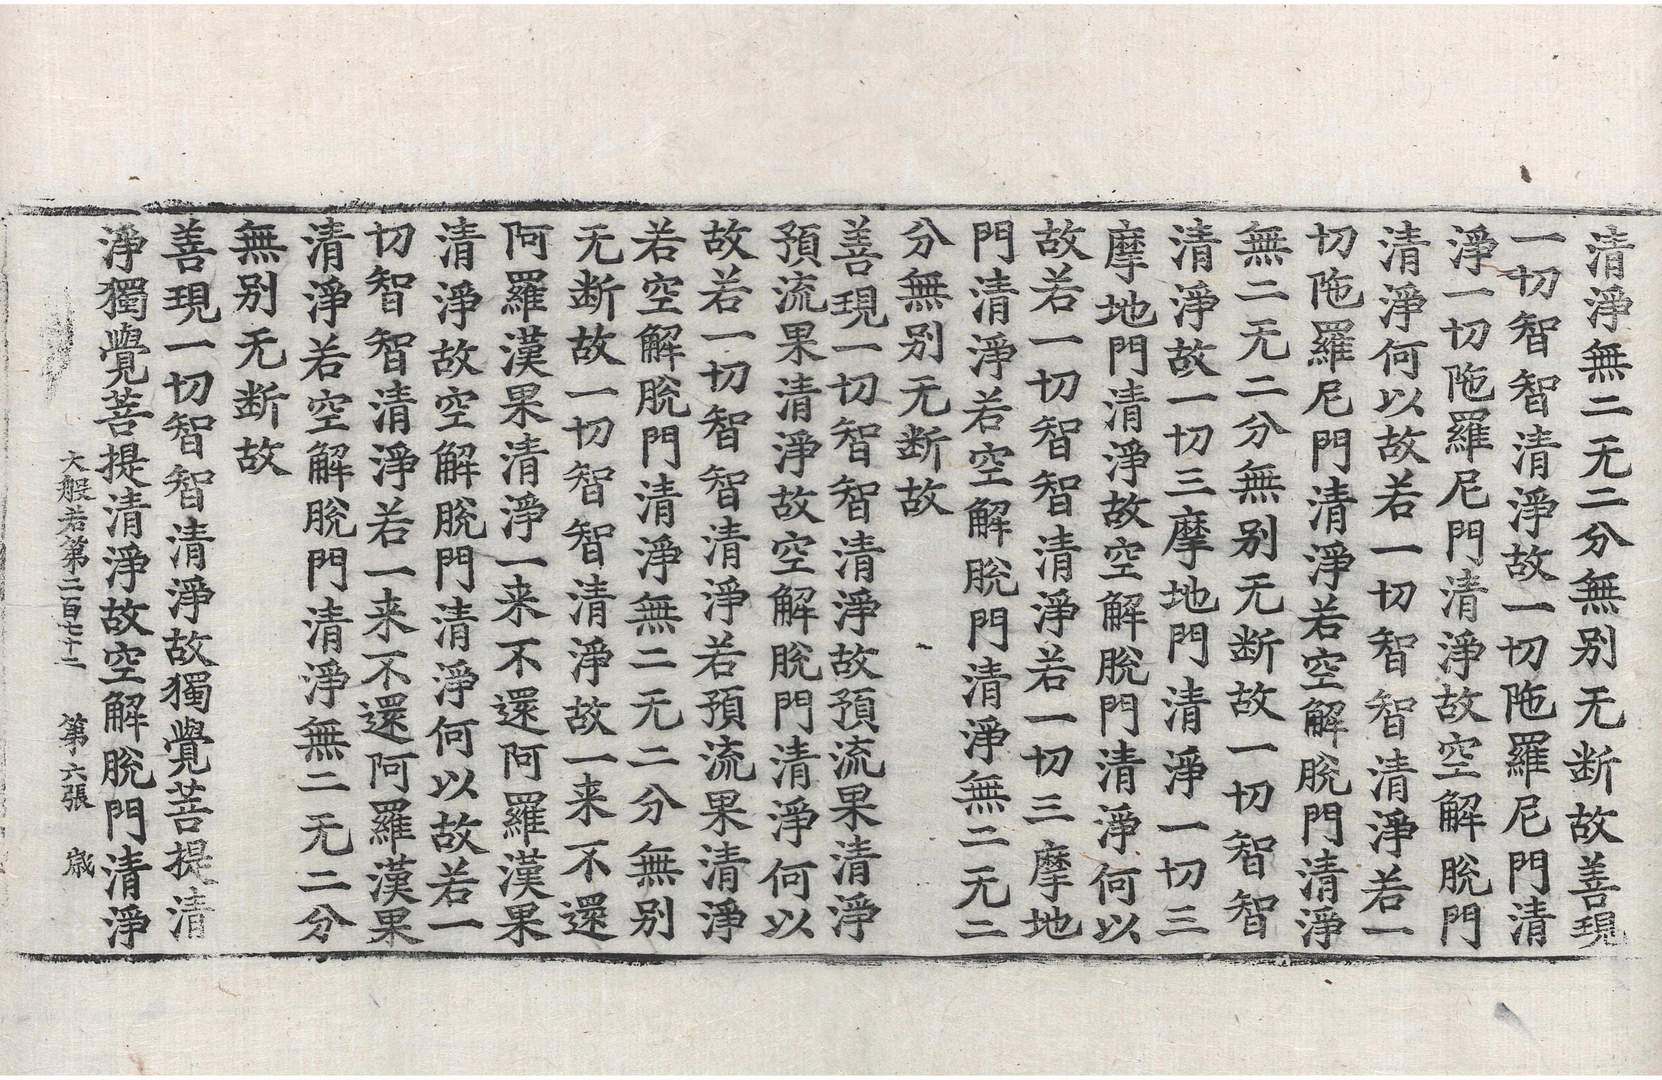 清淨無二无二分無別无断故善現
一切智智清淨故一切陁羅尼門清
淨一切陁羅尼門清淨故空解脫門
清淨何以故若一切智智清淨若一
切陁羅尼門清淨若空解脫門清淨
無二无二分無別无断故一切智智
清淨故一切三摩地門清淨一切三
摩地門清淨故空解脫門清淨何以
故若一切智智清淨若一切三摩地
門清淨若空解脫門清淨無二无二
分無別无断故
善現一切智智清淨故預流果清淨
預流果清淨故空解脫門清淨何以
故若一切智智清淨若預流果清淨
若空解脫門清淨無二无二分無別
无断故一切智智清淨故一来不還
阿羅漢果清淨一来不還阿羅漢果
清淨故空解脫門清淨何以故若一
切智智清淨若一来不還阿羅漢果
清淨若空解脫門清淨無二无二分
無別无断故
善現一切智智清淨故獨覺菩提清
淨獨覺菩提清淨故空解脫門清淨
大般若第二百七十二 第六張 歳